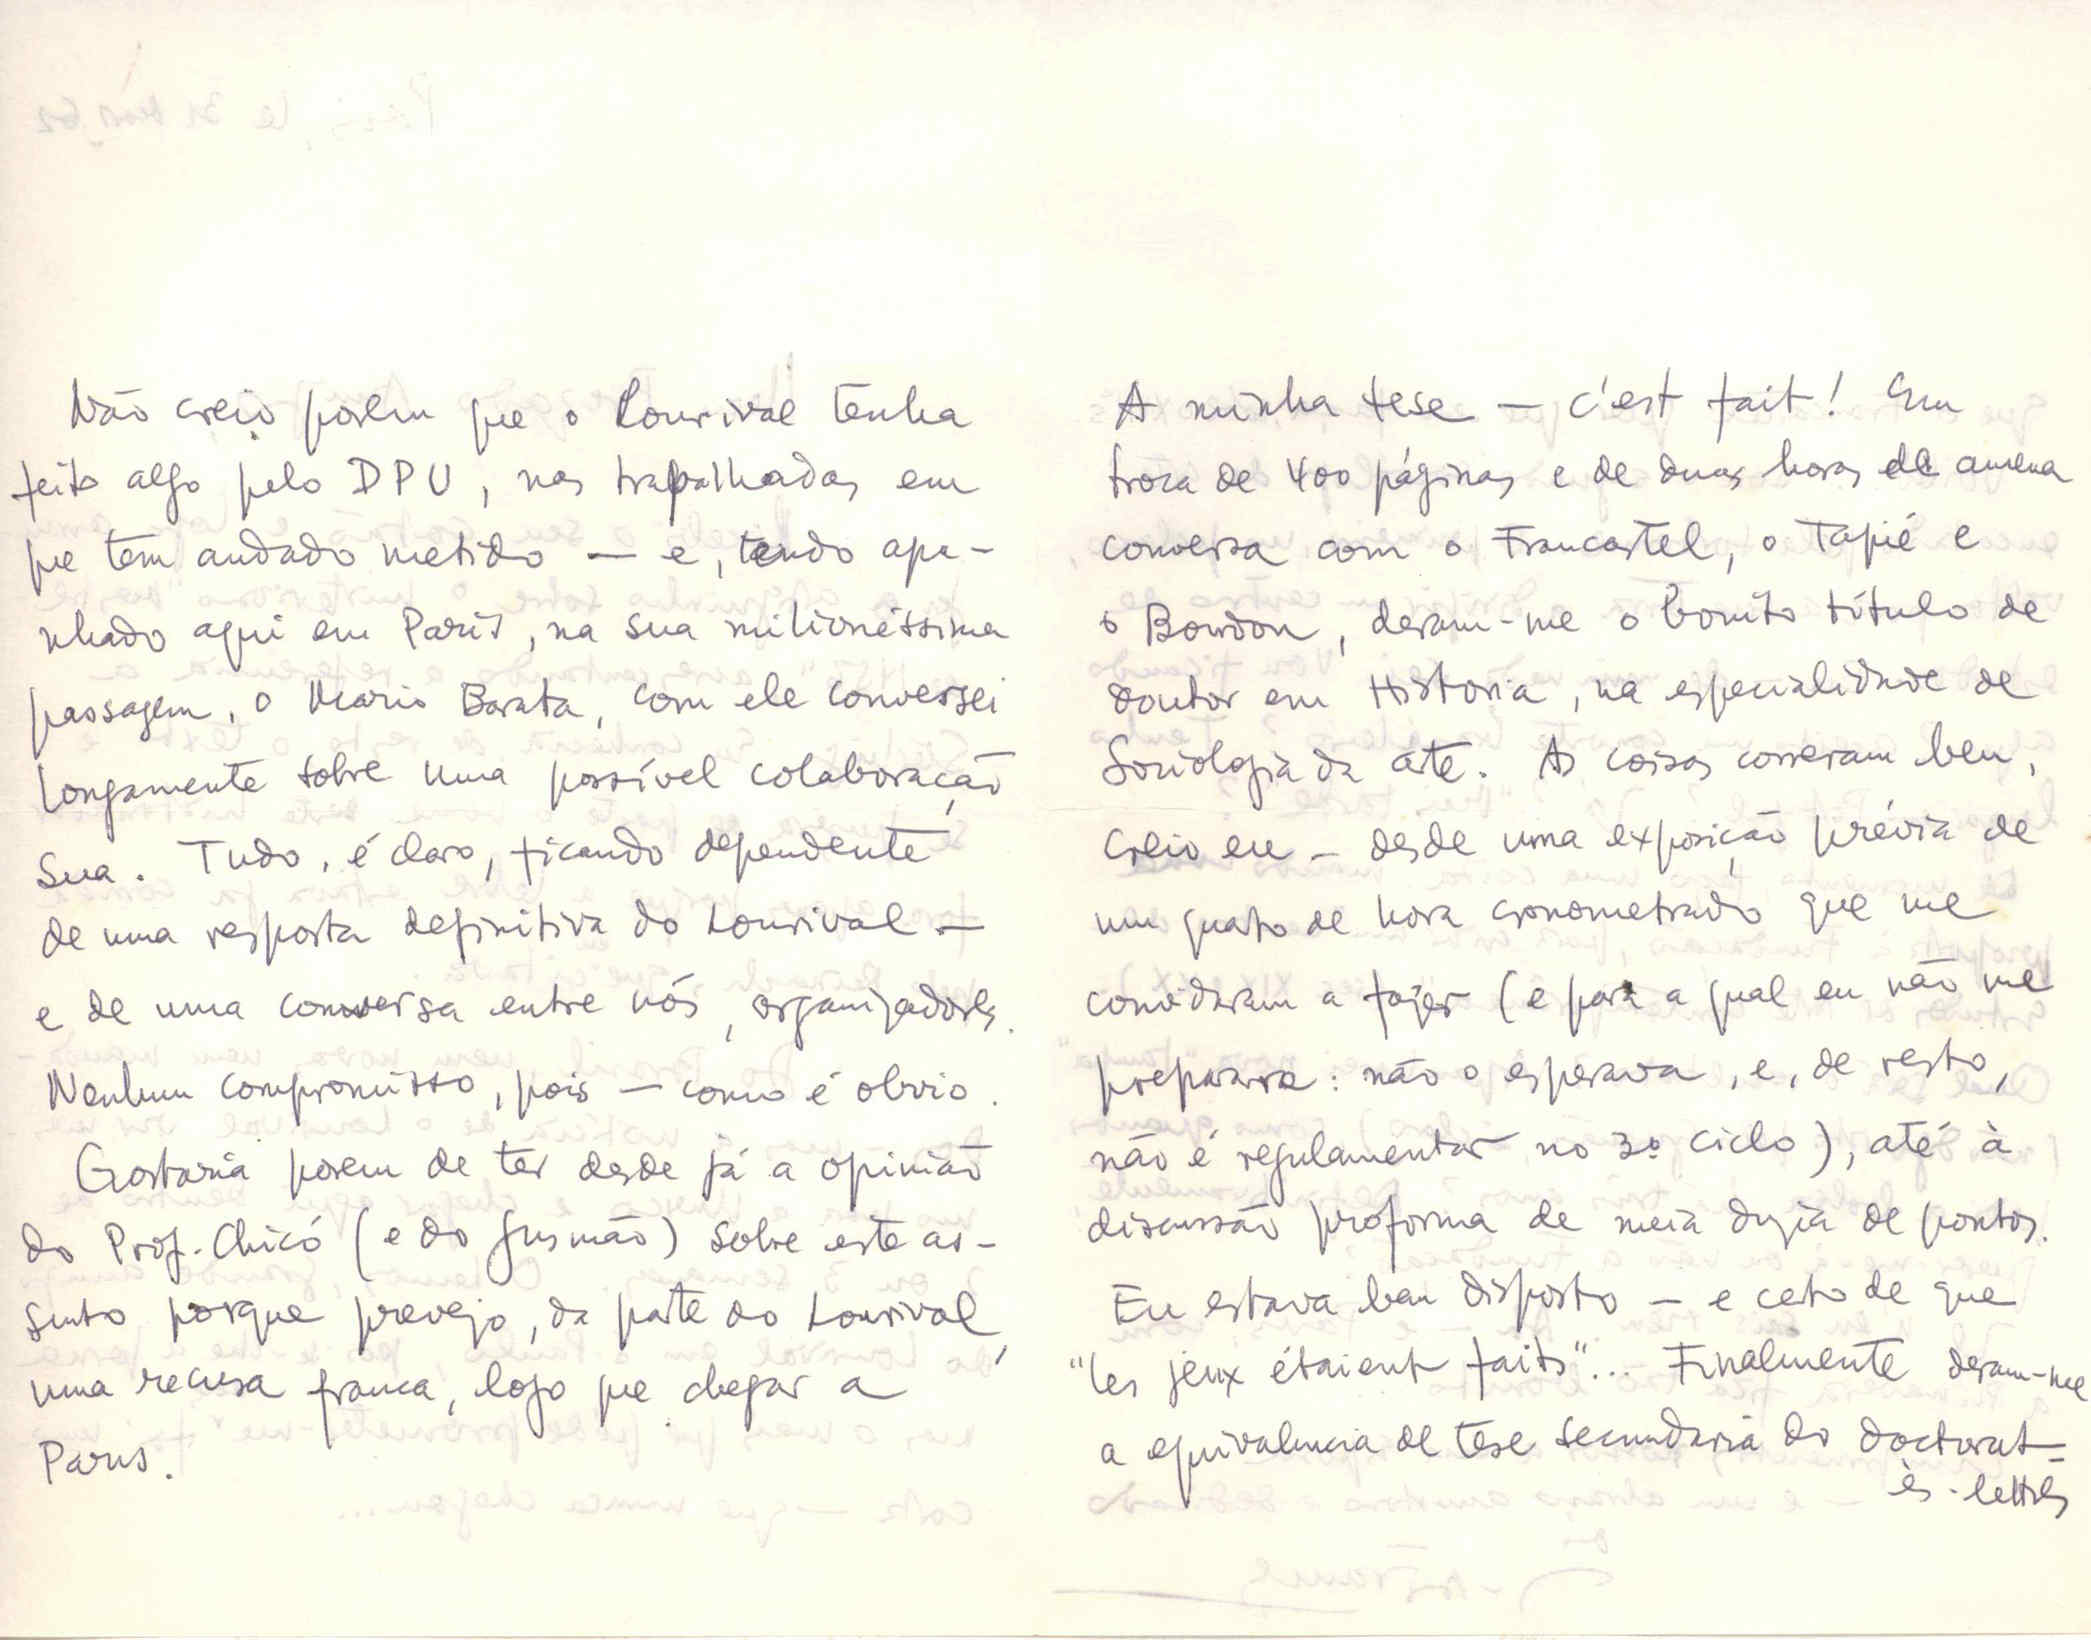 Não creio porem que o Lourival tenha
feito algo pelo DPU, nas trapalhadas em
que tem andado metido — e, tendo apa-
nhado aqui em Paris, na sua milionéssima
passagem, o Mario Barata, com ele conversei
longamente sobre uma possível colaboração
sua. Tudo, é claro, ficando dependente
de uma resposta definitiva do Lourival —
e de uma conversa entre nós, organizadores.
Nenhum compromisso, pois — como é obvio.
Gostaria porem de ter desde já a opinião
do Prof. Chicó (e do Gusmão) sobre este as-
sunto porque prevejo, da parte do Lourival,
uma recusa franca, logo que chegar a
Paris.
A minha tese — c'est fait! Em
troca de 400 páginas e de duas horas de amena
conversa com o Francastel, o Tapié e
o Bourdon, deram-me o bonito título de
doutor em Historia, na especialidade de
Sociologia da arte. As coisas correram bem,
creio eu — desde uma exposição prévia de
um quarto de hora cronometrado que me
convidaram a fazer (e para a qual eu não me
preparara: não o esperava, e, de resto,
não é regulamentar no 3º ciclo), até à
discussão proforma de meia duzia de pontos.
Eu estava bem disposto — e certo de que
"les jeux étaient faits"... Finalmente deram-me
a equivalencia de tese secundaria do doctorat-
ès-lettres